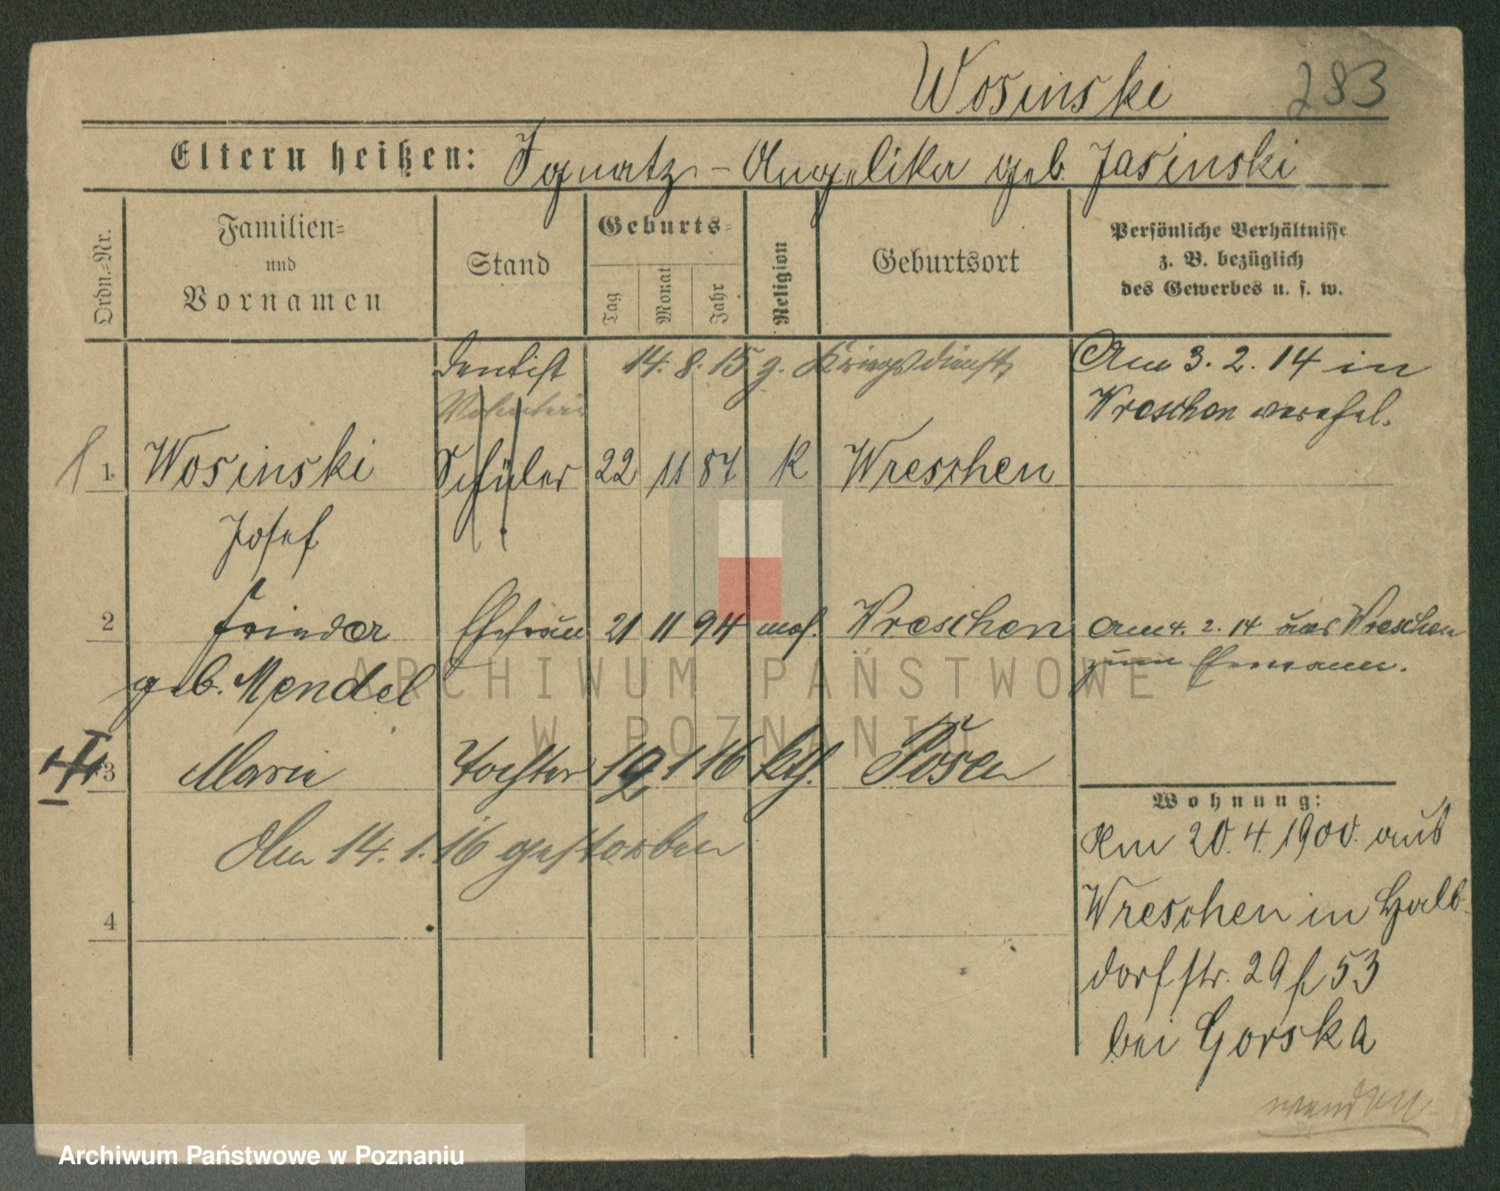 Wosinski 283
Eltern heißen: Ignatz - Angelika geb. Jasinski
Ordn.-Nr.
Familien- und Vornamen
Stand
Geburts-
Tag Monat Jahr
Religion
Geburtsort
Persönliche Verhältnisse
z. B. bezüglich
des Gewerbes u. s. w.
Dentist 14. 8. 15 z. Kriegsdienst
Am 3. 2. 14 in
Wreschen verehel.
1 Wosinski Schüler 22 11 87 K Wreschen
Josef
2 Frieda Ehefrau 21 11 94 mos. Wreschen
Am 4. 2. 14 aus Wreschen
zum Ehemann.
geb. Mendel
3 Marie Tochter 12 1 16 kth. Posen
Am 14. 1. 16 gestorben
4
Wohnung:
Am 20. 4. 1900. aus
Wreschen in Halb-
dorfstr. 29 f 53
bei Gorska
wenden
ARCHIWUM PAŃSTWOWE
W POZNANIU
Archiwum Państwowe w Poznaniu